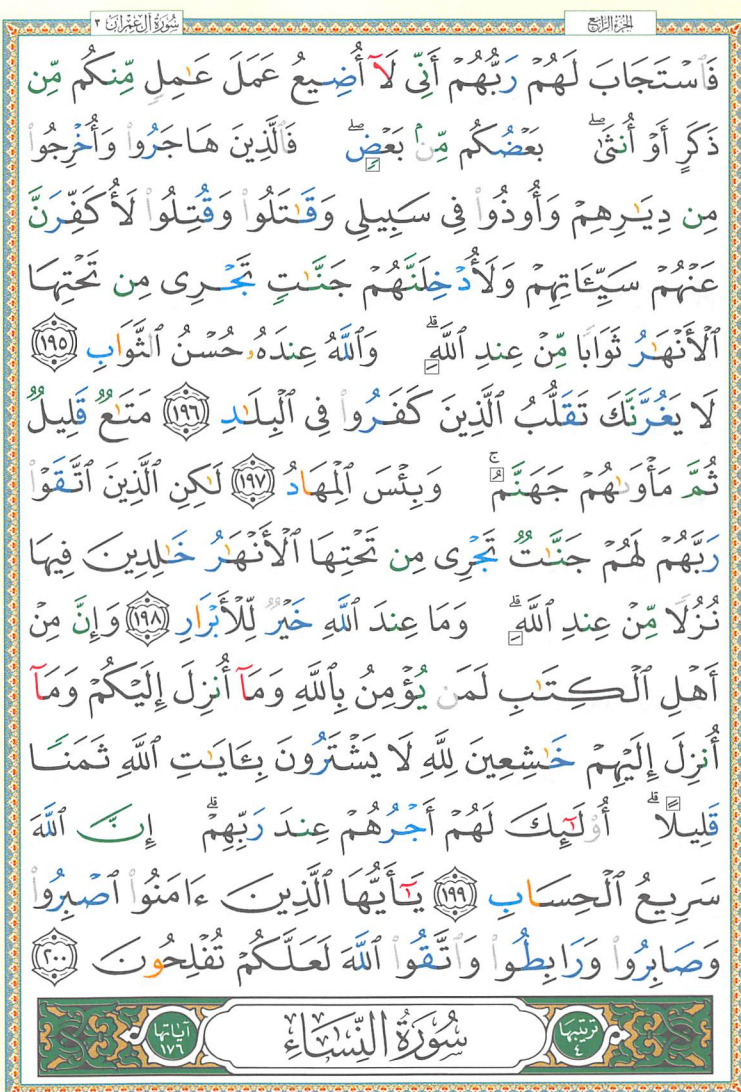 سُورَةُ آلِ عِمْرَانَ ٣
الجُزْءُ الرَّابِعُ
فَٱسْتَجَابَ لَهُمْ رَبُّهُمْ أَنِّى لَآ أُضِيعُ عَمَلَ عَٰمِلٍ مِّنكُم مِّن
ذَكَرٍ أَوْ أُنثَىٰ ۖ بَعْضُكُم مِّنۢ بَعْضٍ ۖ فَٱلَّذِينَ هَاجَرُوا۟ وَأُخْرِجُوا۟
مِن دِيَٰرِهِمْ وَأُوذُوا۟ فِى سَبِيلِى وَقَٰتَلُوا۟ وَقُتِلُوا۟ لَأُكَفِّرَنَّ
عَنْهُمْ سَيِّـَٔاتِهِمْ وَلَأُدْخِلَنَّهُمْ جَنَّٰتٍ تَجْرِى مِن تَحْتِهَا
ٱلْأَنْهَٰرُ ثَوَابًا مِّنْ عِندِ ٱللَّهِ ۗ وَٱللَّهُ عِندَهُۥ حُسْنُ ٱلثَّوَابِ ١٩٥
لَا يَغُرَّنَّكَ تَقَلُّبُ ٱلَّذِينَ كَفَرُوا۟ فِى ٱلْبِلَٰدِ ١٩٦ مَتَٰعٌ قَلِيلٌ
ثُمَّ مَأْوَىٰهُمْ جَهَنَّمُ ۚ وَبِئْسَ ٱلْمِهَادُ ١٩٧ لَٰكِنِ ٱلَّذِينَ ٱتَّقَوْا۟
رَبَّهُمْ لَهُمْ جَنَّٰتٌ تَجْرِى مِن تَحْتِهَا ٱلْأَنْهَٰرُ خَٰلِدِينَ فِيهَا
نُزُلًا مِّنْ عِندِ ٱللَّهِ ۗ وَمَا عِندَ ٱللَّهِ خَيْرٌ لِّلْأَبْرَارِ ١٩٨ وَإِنَّ مِنْ
أَهْلِ ٱلْكِتَٰبِ لَمَن يُؤْمِنُ بِٱللَّهِ وَمَآ أُنزِلَ إِلَيْكُمْ وَمَآ
أُنزِلَ إِلَيْهِمْ خَٰشِعِينَ لِلَّهِ لَا يَشْتَرُونَ بِـَٔايَٰتِ ٱللَّهِ ثَمَنًا
قَلِيلًا ۗ أُو۟لَٰٓئِكَ لَهُمْ أَجْرُهُمْ عِندَ رَبِّهِمْ ۗ إِنَّ ٱللَّهَ
سَرِيعُ ٱلْحِسَابِ ١٩٩ يَٰٓأَيُّهَا ٱلَّذِينَ ءَامَنُوا۟ ٱصْبِرُوا۟
وَصَابِرُوا۟ وَرَابِطُوا۟ وَٱتَّقُوا۟ ٱللَّهَ لَعَلَّكُمْ تُفْلِحُونَ ٢٠٠
ترتيبها ٤
سُورَةُ النِّسَاءِ
آياتها ١٧٦